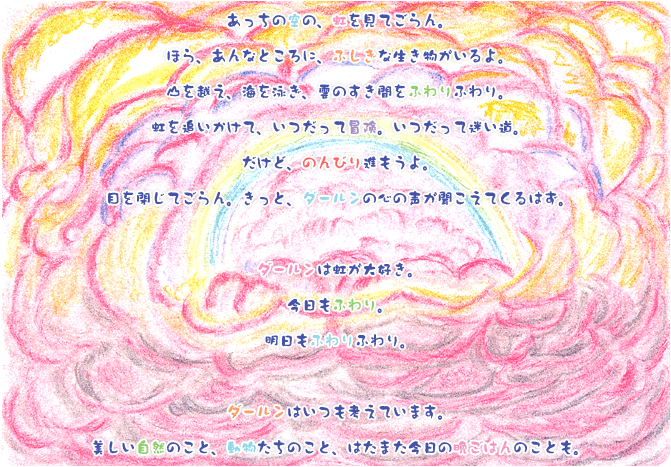 あっちの空の、虹を見てごらん。
ほら、あんなところに、ふしぎな生き物がいるよ。
山を越え、海を泳ぎ、雲のすき間をふわりふわり。
虹を追いかけて、いつだって冒険。いつだって迷い道。
だけど、のんびり進もうよ。
目を閉じてごらん。きっと、ダールンの心の声が聞こえてくるはず。
ダールンは虹が大好き。
今日もふわり。
明日もふわりふわり。
ダールンはいつも考えています。
美しい自然のこと、動物たちのこと、はたまた今日の晩ごはんのことも。